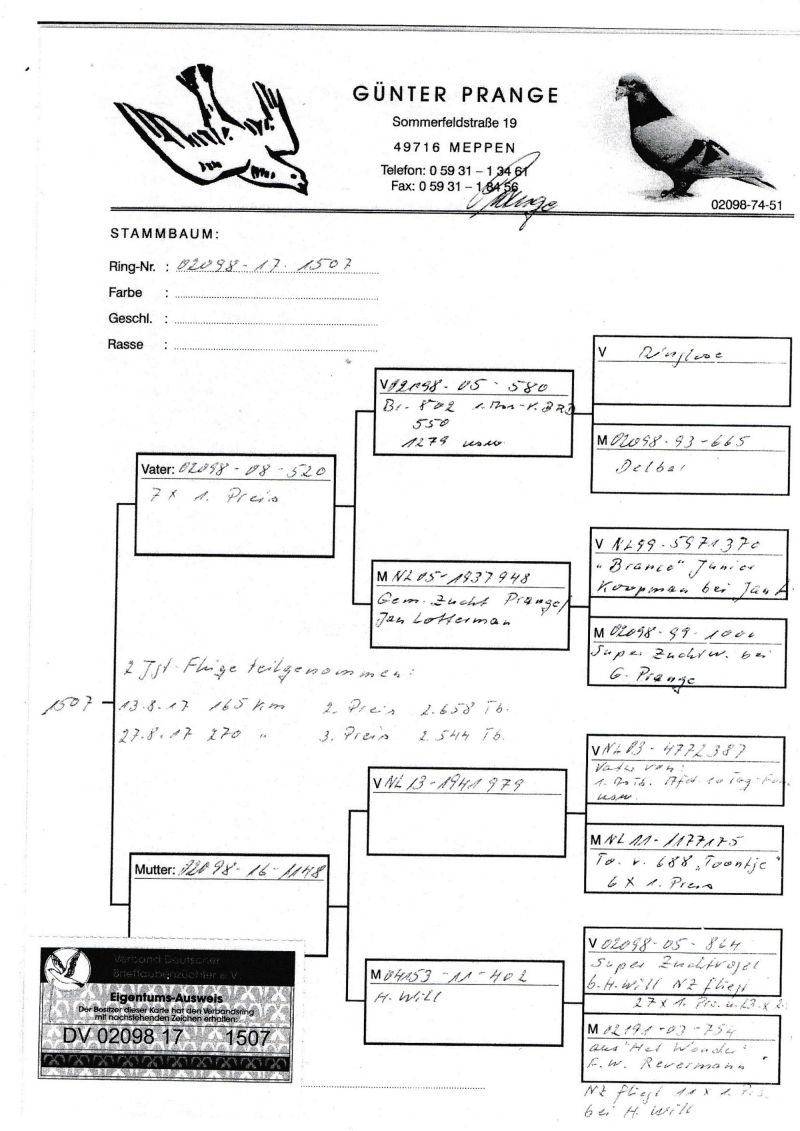 GÜNTER PRANGE
Sommerfeldstraße 19
49716 MEPPEN
Telefon: 0 59 31 – 1 34 61
Fax: 0 59 31 – 1 84 56
Prange
02098-74-51
STAMMBAUM:
Ring-Nr. : 02098-17-1507
Farbe :
Geschl. :
Rasse :
V Ringlose
V 02098-05-580
Br. 802
550
1279 usw.
M 02098-93-665
Delbar
Vater: 02098-08-520
7 x 1. Preis
V NL99-5971370
"Branco" Junior
Koopman bei Jan
M NL05-1937948
Gem. Zucht Prange/
Jan Lotterman
M 02098-99-1000
Super Zuchtw. bei
G. Prange
2 Jgt-Flüge teilgenommen:
1507
13.8.17 165 km 2. Preis 2.658 Tb.
27.8.17 270 " 3. Preis 2.544 Tb.
V NL03-4772387
Vater von:
usw.
V NL13-1941979
M NL11-1177175
To. v. 688 "Toontje"
6 x 1. Preis
Mutter: 02098-16-1148
V 02098-05-864
Super Zuchtvogel
b. H. Will NZ fliegt
27 x 1.
M 04153-11-402
H. Will
M 02191-03-754
aus "Het Wonder"
F. W. Revermann
NZ fliegt 11 x 1. Prs.
bei H. Will
Verband Deutscher
Brieftaubenzüchter e.V.
Eigentums-Ausweis
Der Besitzer dieser Karte hat den Verbandsring
mit nachstehenden Zeichen erhalten:
DV 02098 17 1507